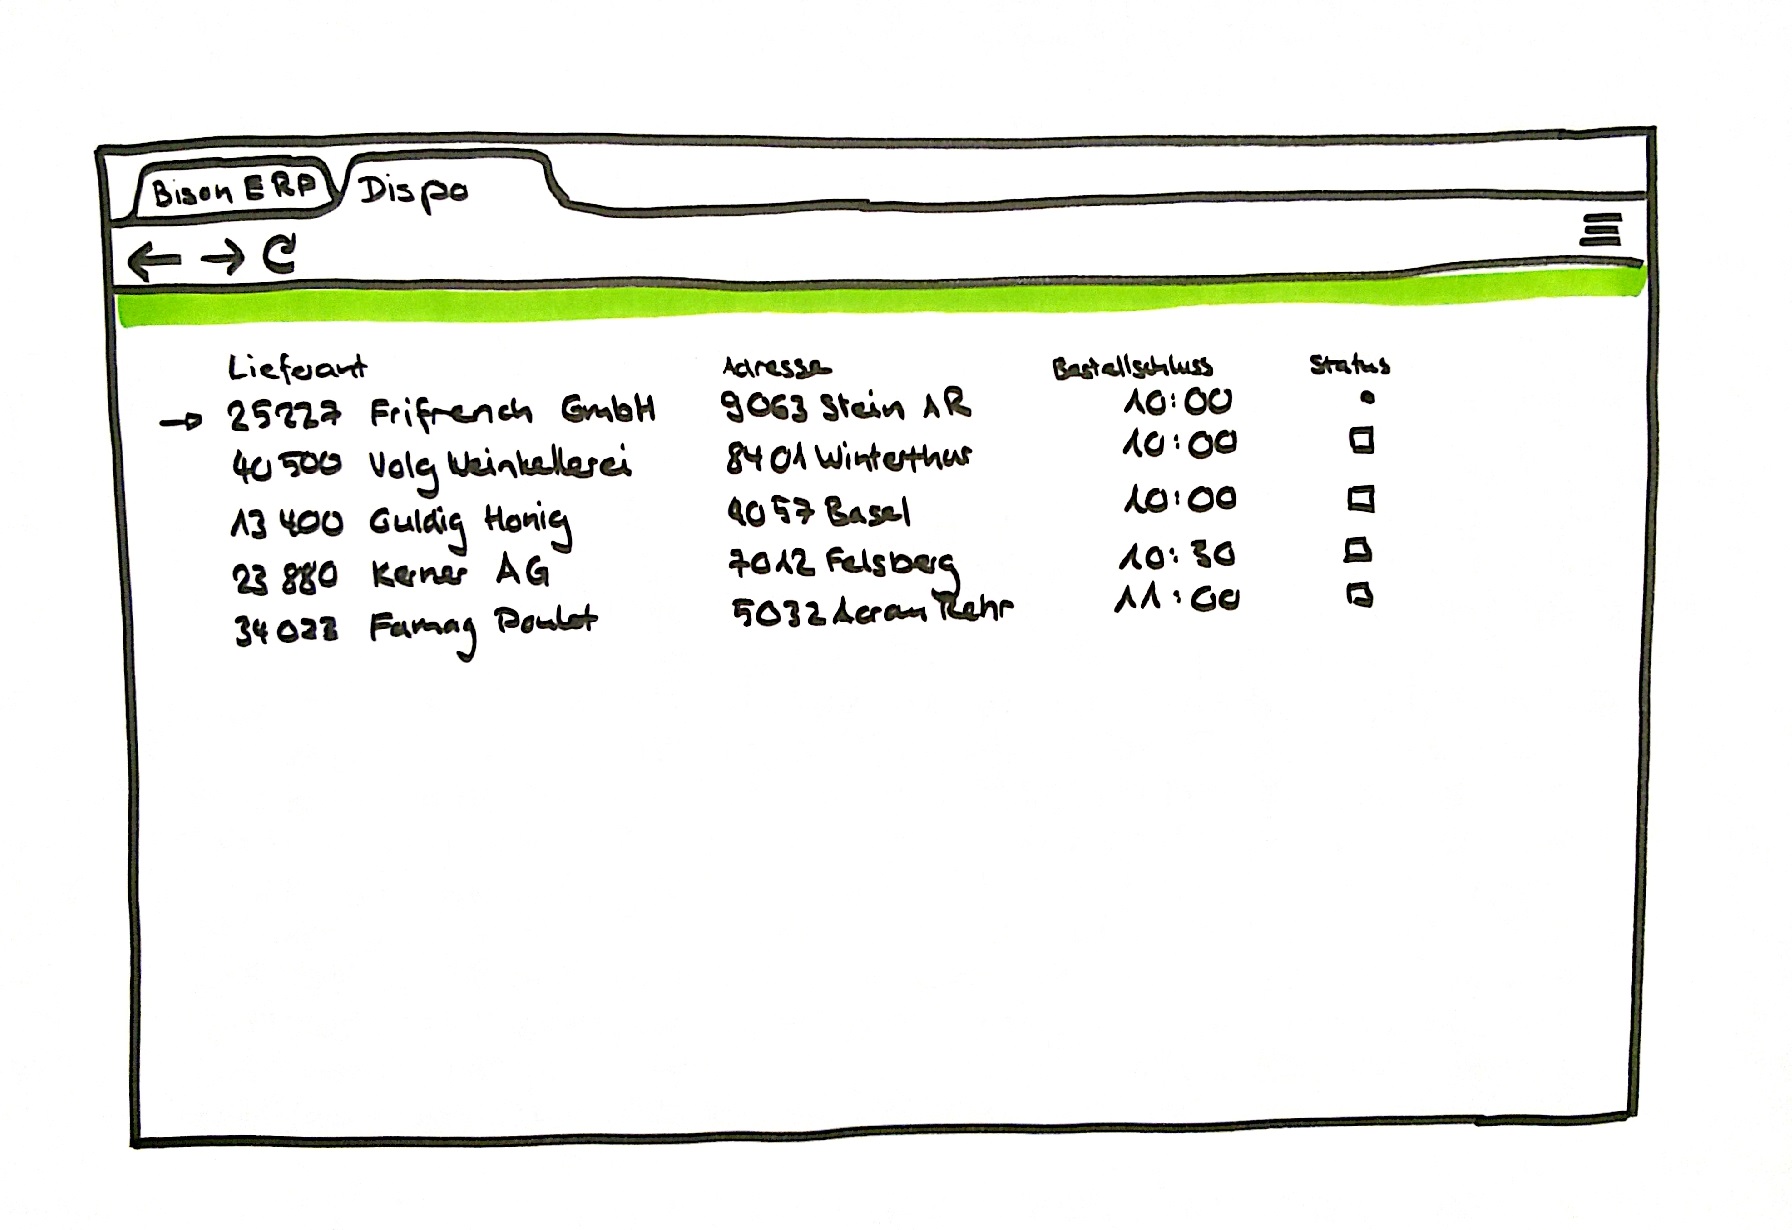 Bison ERP Dispo
Lieferant Adresse Bestellschluss Status
25227 Frifrench GmbH 9063 Stein AR 10:00
40500 Volg Weinkellerei 8401 Winterthur 10:00
13400 Guldig Honig 4057 Basel 10:00
23880 Kerner AG 7012 Felsberg 10:30
Famag Poulet 5032 Rohr 11:00